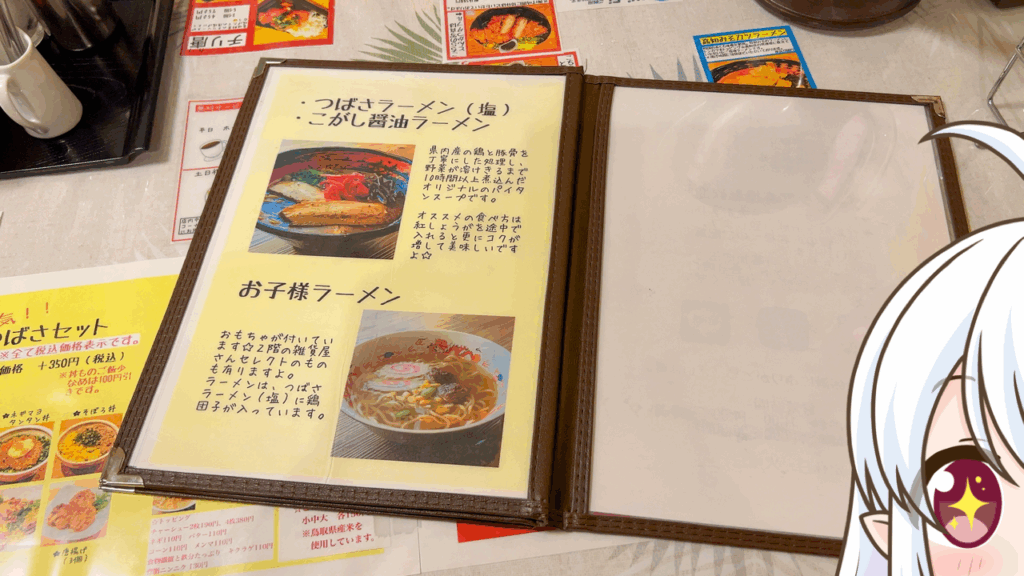 ・つばさラーメン（塩）
・こがし醤油ラーメン
県内産の鶏と豚骨を
丁寧にした処理し、
野菜が溶けきるまで
10時間以上煮込んだ
オリジナルのパイタ
ンスープです。
オススメの食べ方は
紅しょうがを途中で
入れると更にコクが
増して美味しいです
よ☆
お子様ラーメン
おもちゃが付いてい
ます☆2階の雑貨屋
さんセレクトのもの
も有りますよ。
ラーメンは、つばさ
ラーメン（塩）に鶏
団子が入っています。
チリ唐
気！！
つばさセット
※全て税込価格表示です。
価格 +350円（税込）
※丼ものご飯少
なめは100円引
きです。
★ネギマヨ
タンタン丼
★そぼろ丼
★唐揚げ
小中大
※鳥取県産米を
使用しています。